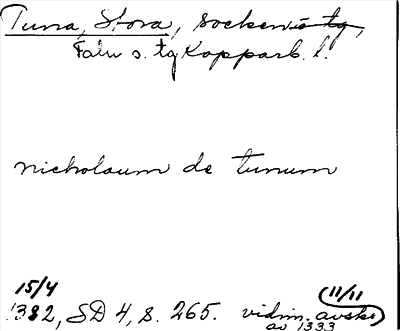 Tuna, Stora, socken i tg,
Falu s. tg Kopparb. l.
nicholaum de tunum
15/4 (11/11
1332, SD 4, s. 265. vidim. avskr.
av 1333